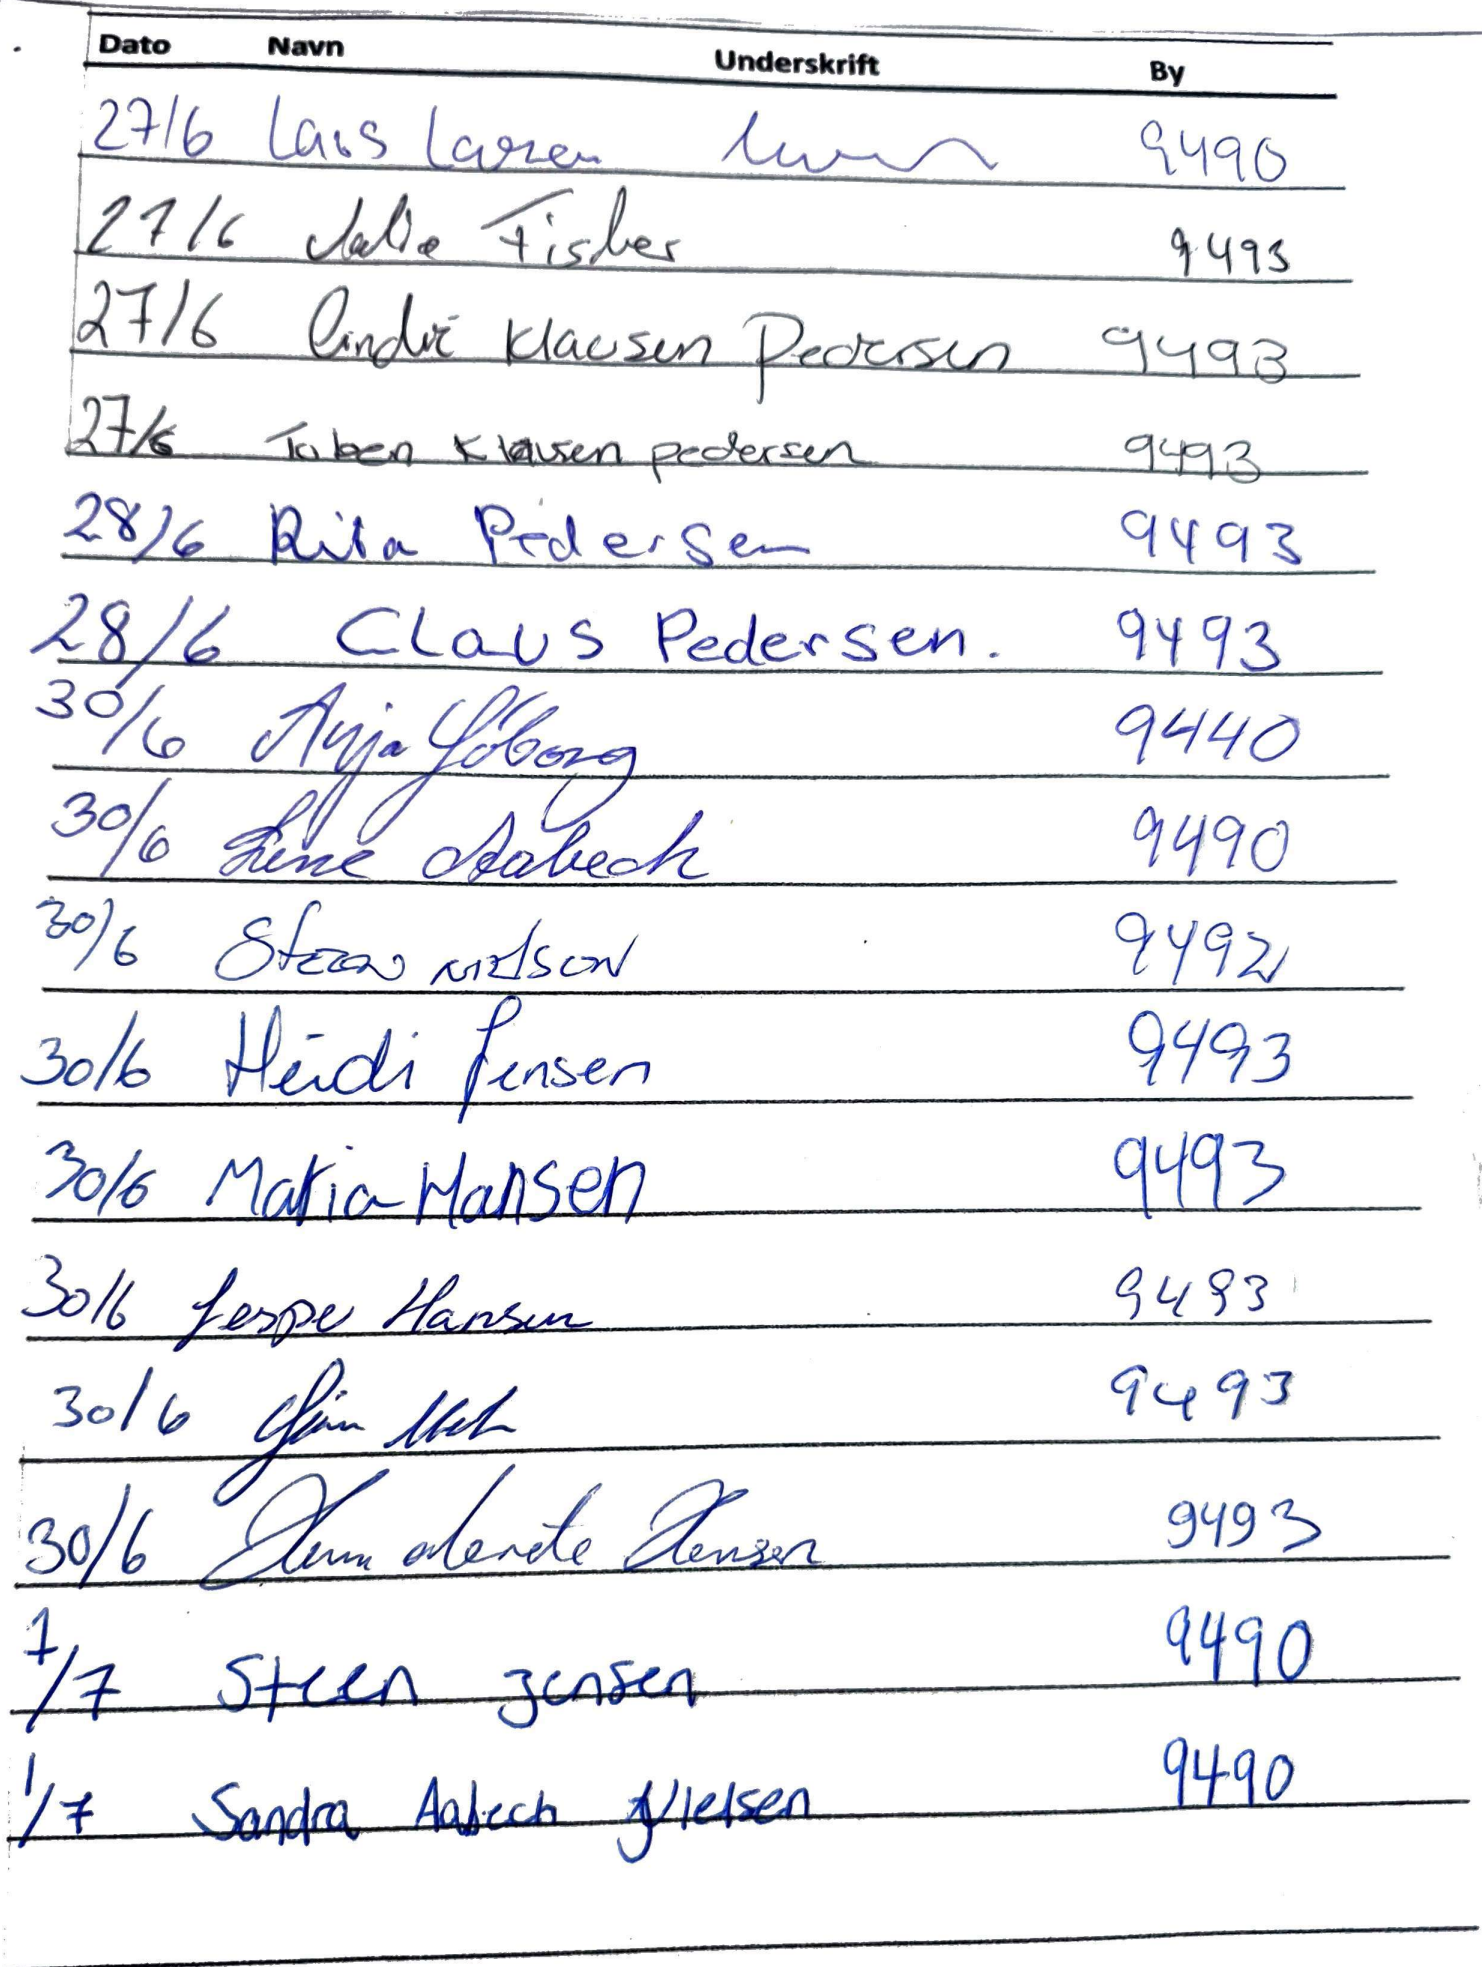 Dato Navn Underskrift By
27/6 Lars Larsen 9490
27/6 Julie Fisker 9493
27/6 André Klausen Pedersen 9493
27/6 Klausen pedersen 9493
28/6 Rita Pedersen 9493
28/6 CLaus Pedersen. 9493
30/6 Anja 9440
30/6 Lene Aabech 9490
30/6 Steen Nielsen 9492
30/6 Heidi Jensen 9493
30/6 Maria Hansen 9493
30/6 Jesper Hansen 9493
30/6 9493
30/6 Merete Hansen 9493
1/7 Steen Jensen 9490
1/7 Sandra Aabech Nielsen 9490